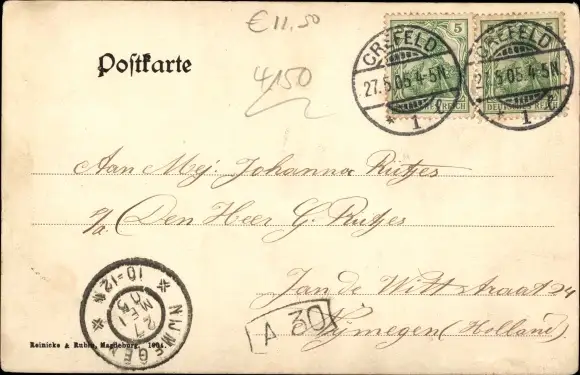 € 11,50
4150
Postkarte
5 5
CREFELD
27.5.05.4-5N
* 1 f
CREFELD
27.5.05.4-5N
* 1 f
DEUTSCHES REICH
Aan Mej. Johanna Rutjes
p/a. Den Heer G. Rutjes
Jan de Wittstraat 24
Nijmegen (Holland)
A 30
NIJMEGEN
10-12
27
MEI
05
Reinicke & Rubin, Magdeburg. 1904.